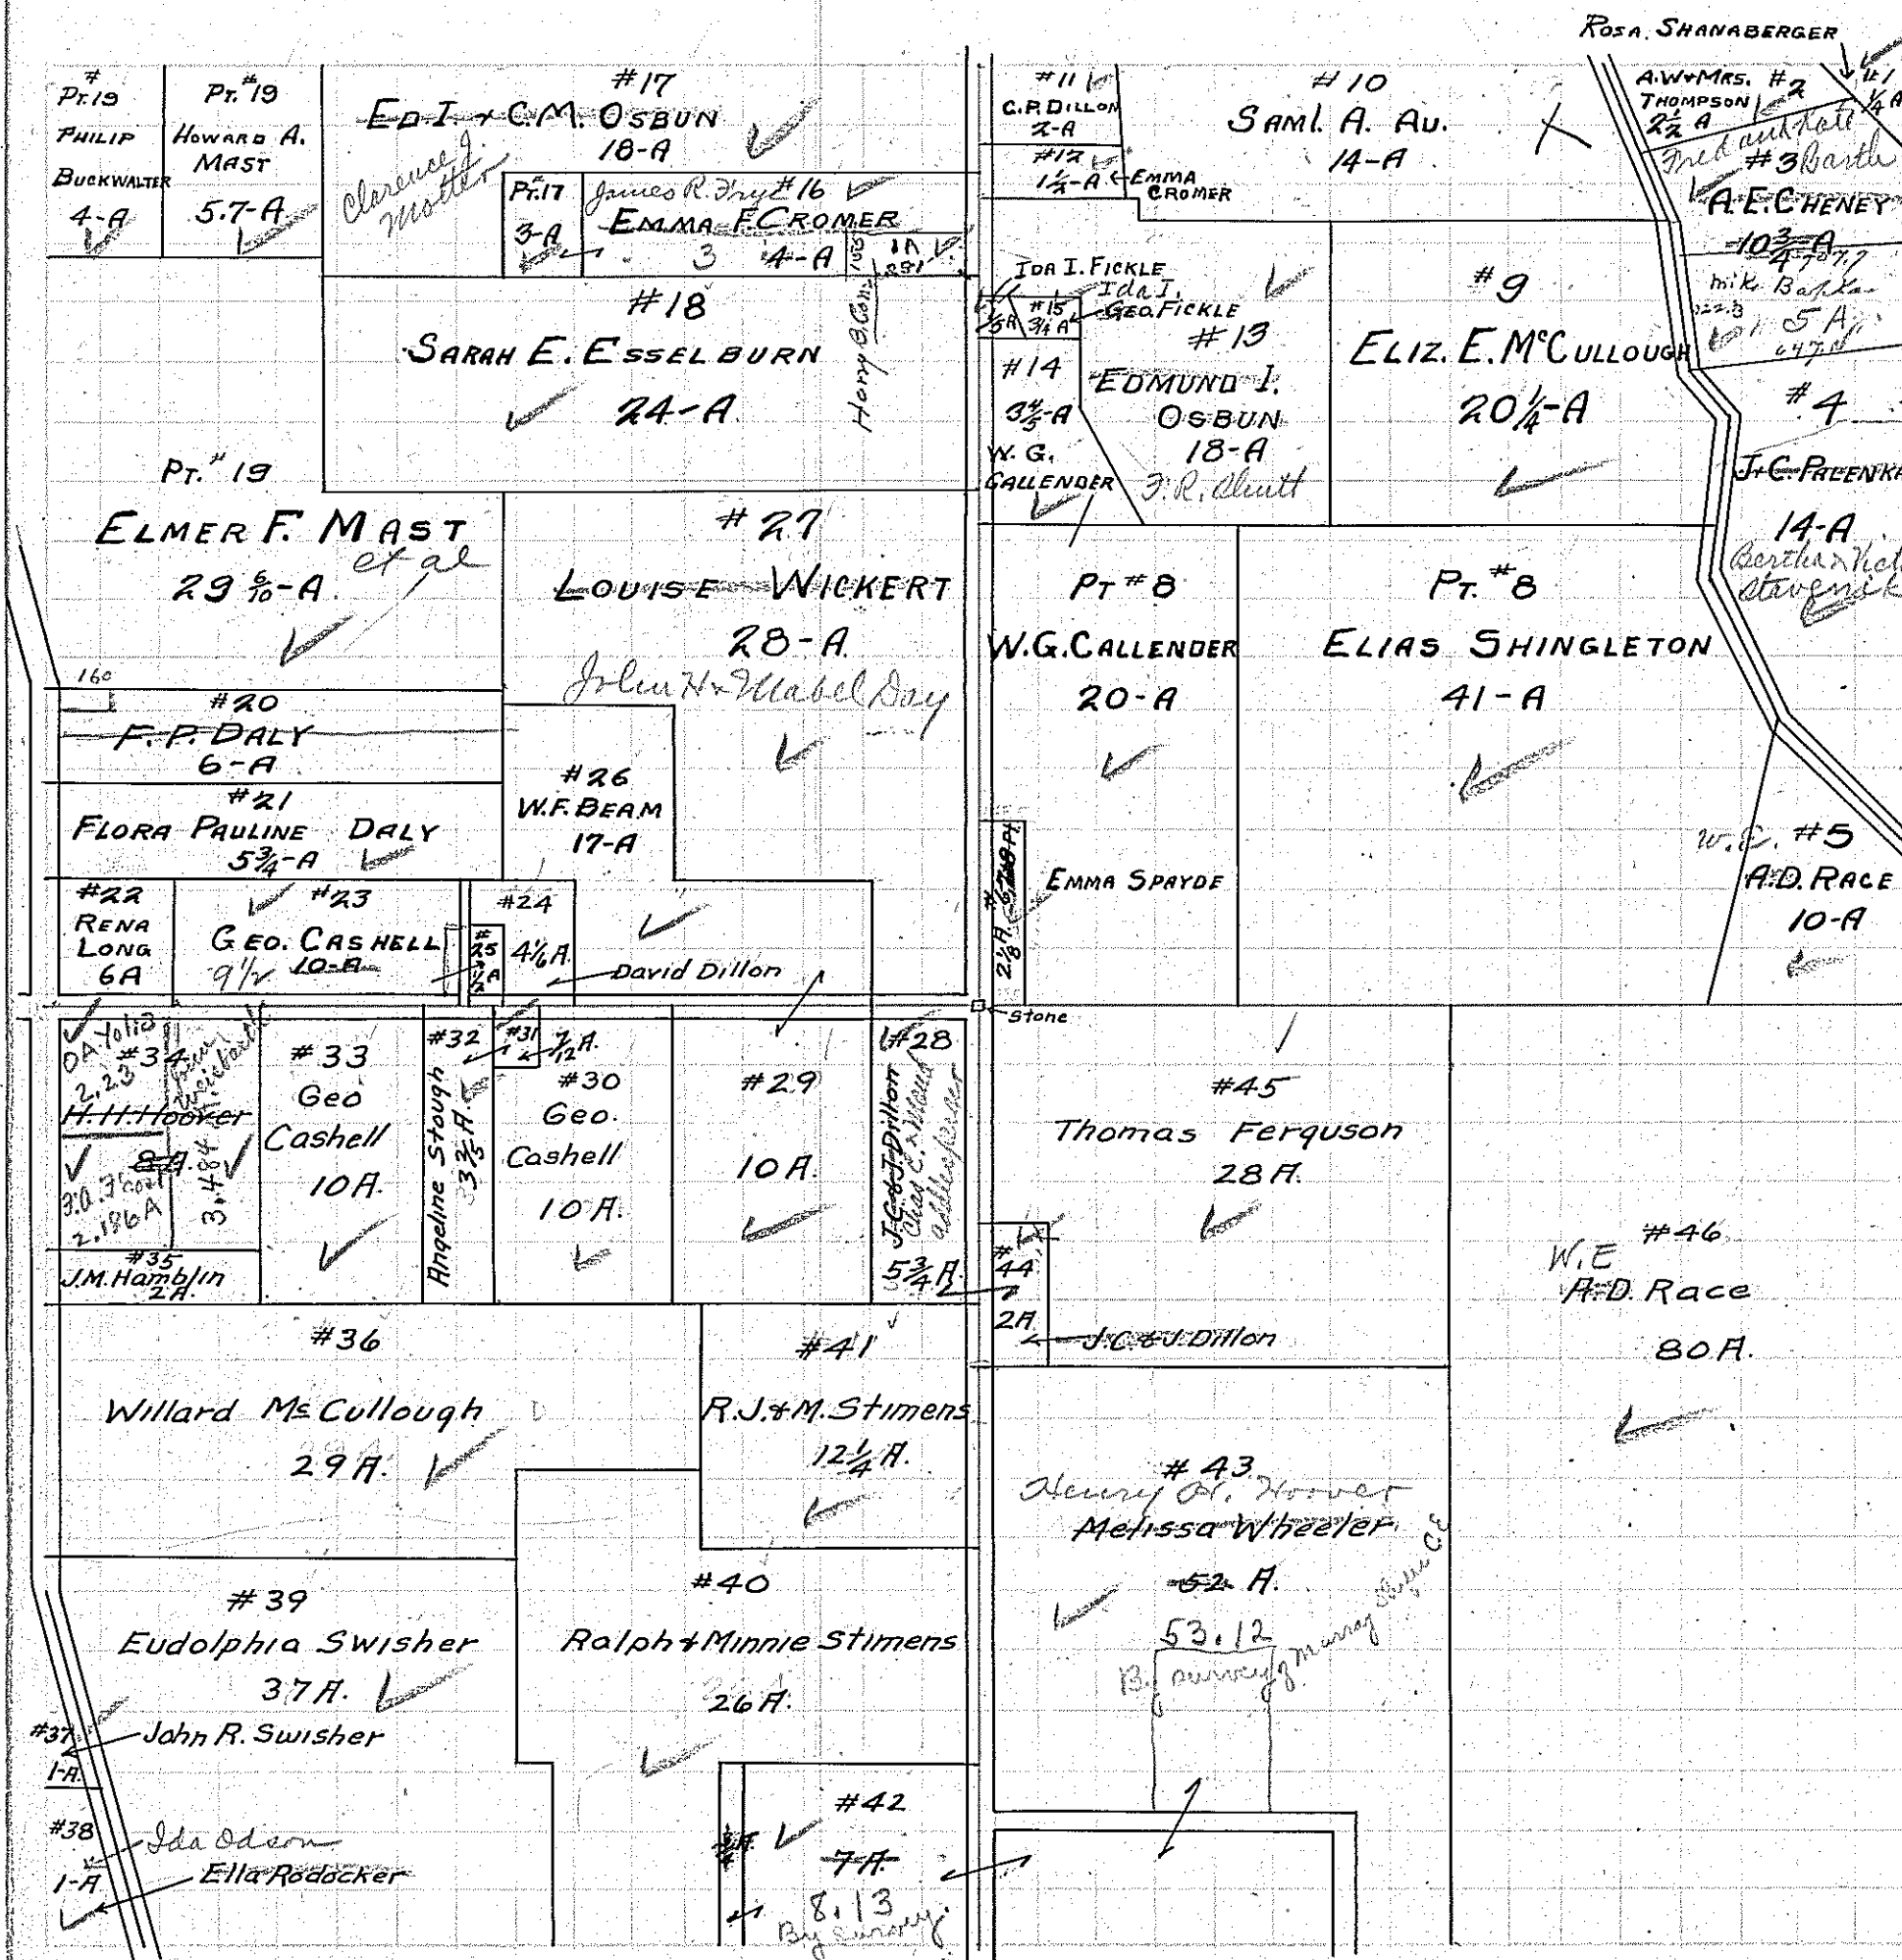 ROSA. SHANABERGER
#
PT.19
PHILIP
BUCKWALTER
4-A
PT. #19
HOWARD A.
MAST
5.7-A
#17
ED.I. + C.M. OSBUN
18-A
Clarence J.
Motter
PT.#17
3-A
James R. Frye #16
EMMA F. CROMER
3 4-A
1A
Harry B. Con
#11
C.P. DILLON
2-A
#12
1¼-A
EMMA
CROMER
#10
SAML. A. AU.
14-A
A.W+MRS. #2
THOMPSON
2½ A
#1
¼ A
Fred and Kate
#3 Barth
A.E. CHENEY
10¾-A
Mike
5 A
#18
SARAH E. ESSELBURN
24-A.
IDA I. FICKLE
Ida I.
GEO. FICKLE
#15
3/4 A
1/5A
#13
EDMUND I.
OSBUN
18-A
#14
3⅘-A
W. G.
CALLENDER
#9
ELIZ. E. McCULLOUGH
20¼-A
#4
J.C. PALENKA
14-A
Bertha
PT. #19
ELMER F. MAST
et al
29 6/10-A.
#27
LOUISE WICKERT
28-A.
John H + Mabel Day
PT #8
W.G. CALLENDER
20-A
PT. #8
ELIAS SHINGLETON
41-A
160
#20
F. P. DALY
6-A
#21
FLORA PAULINE DALY
5¾-A
#26
W.F. BEAM
17-A
2⅛ A.
EMMA SPAYDE
#5
A.D. RACE
10-A
#22
RENA
LONG
6A
#23
GEO. CASHELL
9½ 10-A
#
25
½ A
#24
4⅙A.
David Dillon
Stone
#34
2.23
H.H. Hoover
8A.
2.186A
3.484
#35
J.M. Hamblin
2A.
#33
Geo
Cashell
10A.
#32
Angeline Stough
3⅖ A.
#31
7/12 A.
#30
Geo.
Cashell
10 A.
#29
10 A.
#28
J.C.&J. Dillon
Chas C. & Maud
5¾ A.
#45
Thomas Ferguson
28 A.
#
44
2A
J.C.&J. Dillon
#46
W.E
A.D. Race
80 A.
#36
Willard McCullough
29 A.
#41
R.J.&M. Stimens
12¼ A.
#43
Henry H. Hoover
Melissa Wheeler
52 A.
53.12
By survey of Murray
#39
Eudolphia Swisher
37 A.
#40
Ralph & Minnie Stimens
26 A.
#37
1-A.
John R. Swisher
#38
1-A
Ida Odson
Ella Rodocker
#42
7 A.
8.13
By survey.